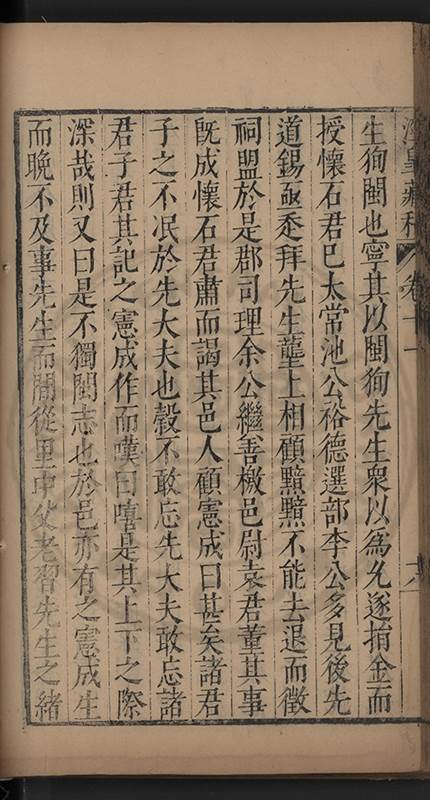 涇皐藏稿 卷十一 十八
生狥閩也寧其以閩狥先生衆以為允遂捐金而
授懷石君巳太常池公裕德選部李公多見後先
道錫亟趣拜先生壟上相顧黯黯不能去退而徵
祠盟於是郡司理余公繼善檄邑尉袁君董其事
旣成懷石君肅而謁其邑人顧憲成曰甚矣諸君
子之不泯於先大夫也榖不敢忘先大夫敢忘諸
君子君其記之憲成作而嘆曰嘻是其上下之際
深哉則又曰是不獨閩志也於邑亦有之憲成生
而晚不及事先生而間從里中父老習先生之緒